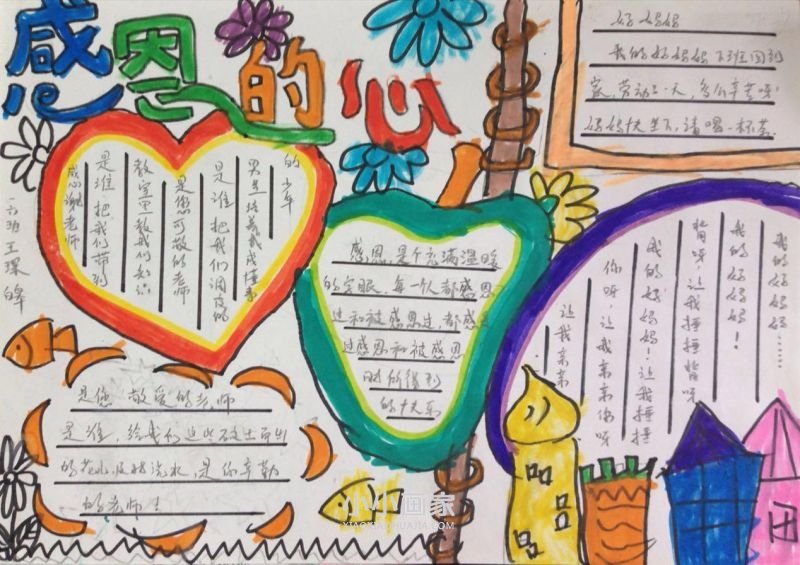 感恩的心
好妈妈
我的好妈妈下班回到
家,劳动了一天,多么辛苦呀!
妈妈快坐下,请喝一杯茶
感谢老师
是谁把我们带到
教室里教我们知识
是您可敬的老师
是谁把我们调皮的
男生培养
的少年
二六班王琛皞
感恩是个充满温暖
的字眼,每一个人都感恩
过和被感恩过,都感
过感恩和被感恩
时所得到
的快乐
我的好妈妈……
我的好妈妈!
背呀,让我捶捶背呀
我的好妈妈!让我捶捶
你呀,让我亲亲你呀
让我亲亲
是您敬爱的老师
是谁,给我们这些破土而出
的花儿及时浇水,是你辛勤
的老师!
小小画家
XIAOXIAOHUAJIA.COM